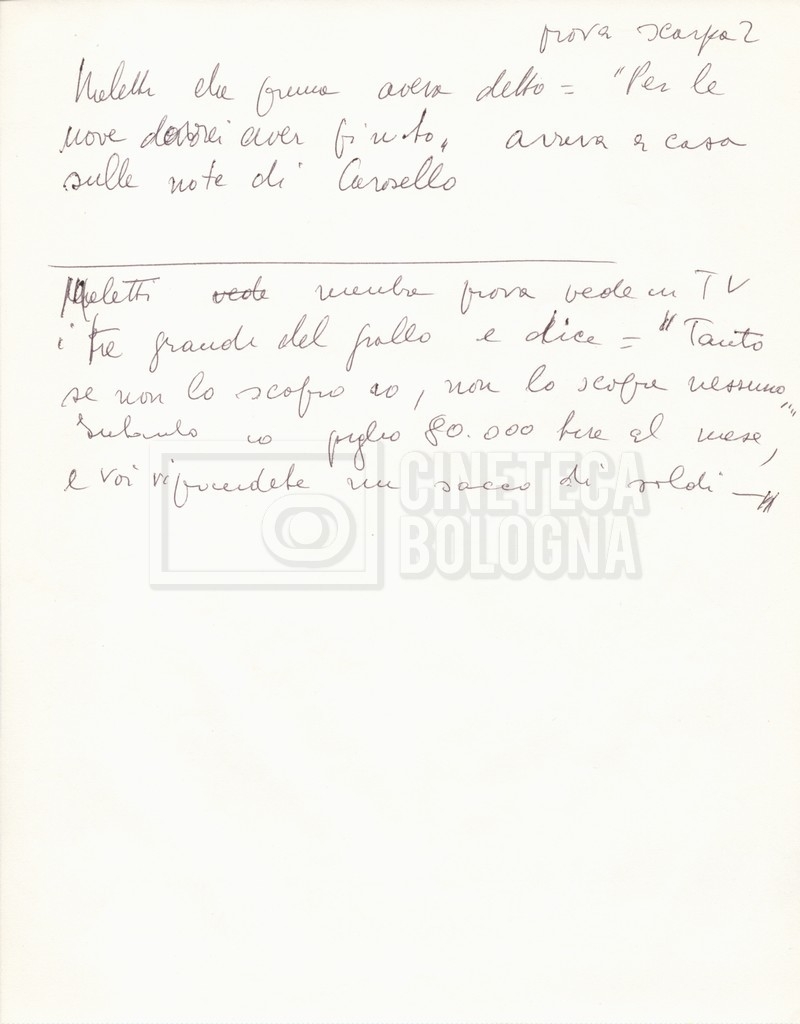 prova scarpa 2
Meletti che prima aveva detto = "Per le
nove dovrei aver finito" arriva a casa
sulle note di Carosello
Meletti vede mentre prova vede in TV
i tre grandi del giallo e dice = "Tanto
se non lo scopro io, non lo scopre nessuno"
Soltanto io piglio 80.000 lire al mese,
e voi riprendete un sacco di soldi —"
CINETECA
BOLOGNA